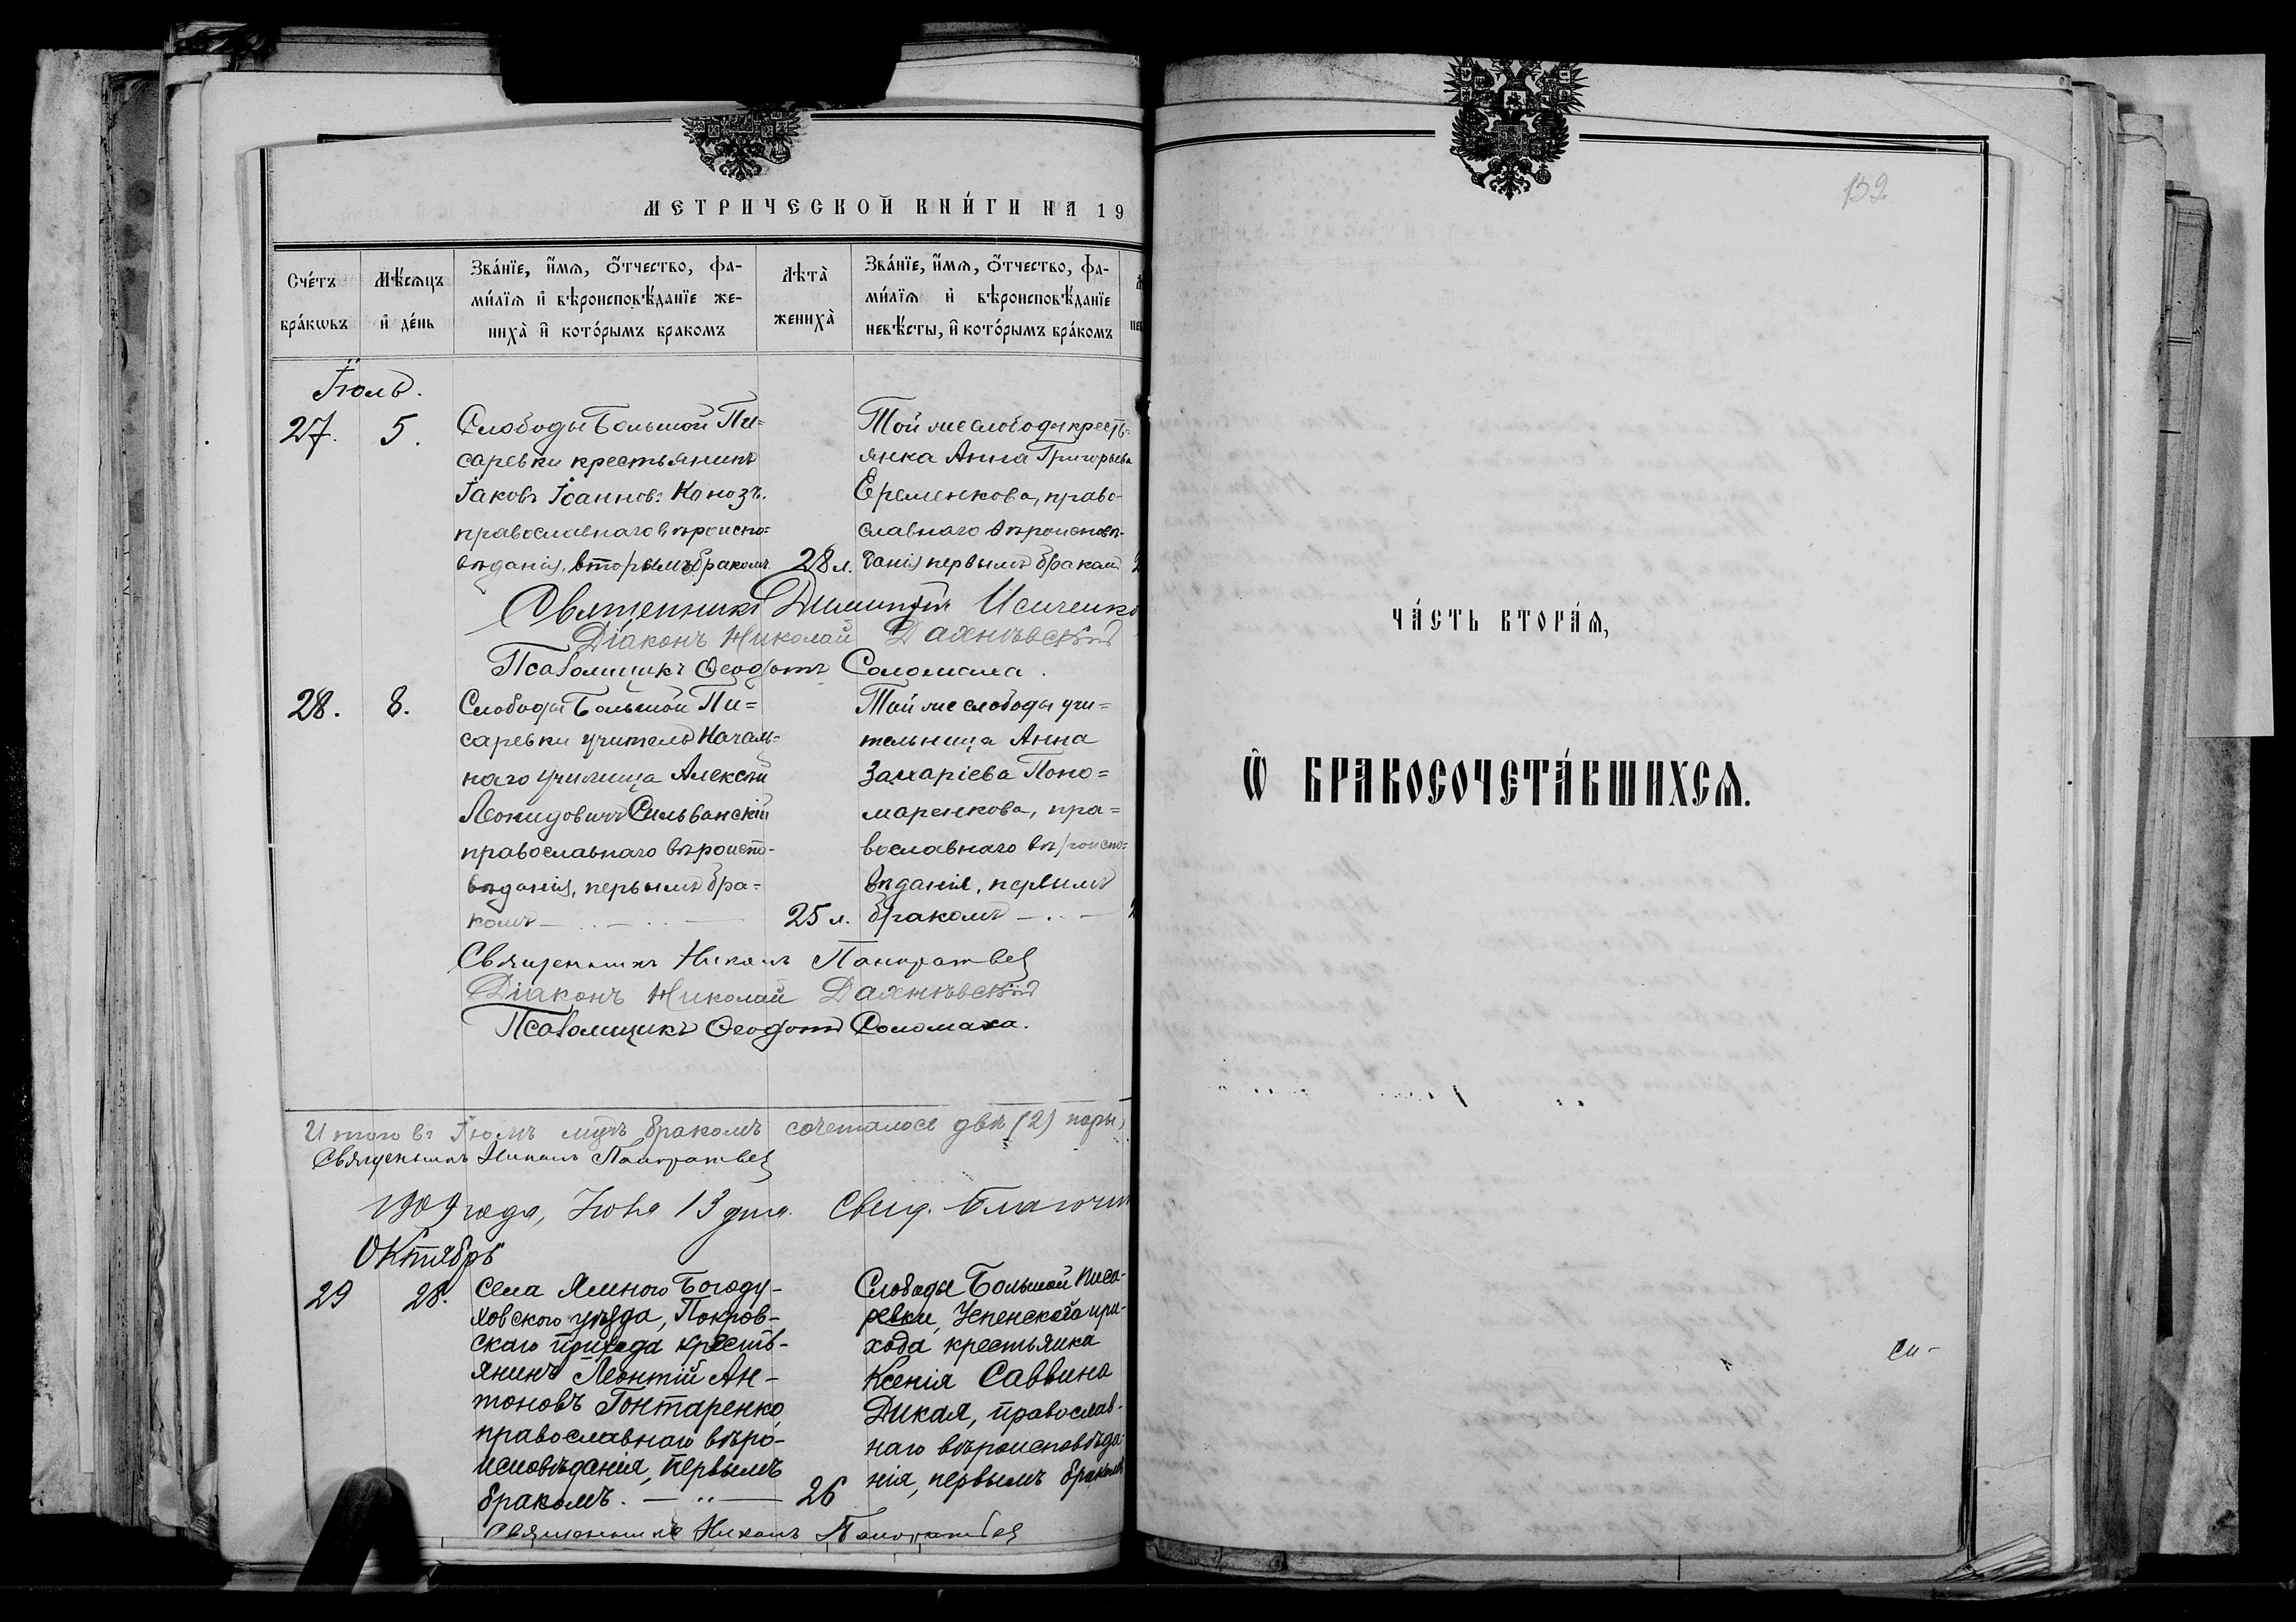 МЕТРИЧЕСКОЙ КНИ́ГИ НА 19
Сче́тъ бра́кѡвъ
Мѣ́сѧцъ и҆ де́нь
Зва́нїе, и҆́мѧ, ѻ҆́тчество, фа-
ми́лїѧ и҆ вѣроисповѣ́данїе же-
ниха̀ и҆ кото́рымъ бракомъ
Лѣта̀ жениха̀
Зва́нїе, и҆́мѧ, ѻ҆́тчество, фа-
ми́лїѧ и҆ вѣроисповѣ́данїе
невѣ́сты, и҆ кото́рымъ бра́комъ
Іюль.
27. 5.
Слободы Большой Пи=
саревки крестьянинъ
Іаковъ Іоанновъ Коноз.
православнаго вѣроиспо=
вѣданія, вторымъ бракомъ. 28 л.
Той же слободы кресть=
янка Анна Григорьева
Еременкова, право-
славнаго вѣроисповѣ-
данія первымъ бракомъ
Священникъ Димитрій Исиченко
Діаконъ Николай Дахнѣвскій
Псаломщикъ Ѳеодотъ Соломаха.
28. 8.
Слободы Большой Пи=
саревки учитель Началь=
наго училища Алексѣй
Леонидовичъ Сильванскій
православнаго вѣроиспо-
вѣданія, первымъ бра=
комъ 25 л.
Той же слободы учи=
тельница Анна
Захаріева Поно=
маренкова, пра=
вославнаго вѣроиспо=
вѣданія, первымъ
бракомъ
Священникъ Николъ Панкратьев
Діаконъ Николай Дахнѣвскій
Псаломщикъ Ѳеодотъ Соломаха.
Итого въ Іюлѣ мцѣ бракомъ сочеталось двѣ (2) пары,
Священникъ Николъ Панкратьев
1909 года, Іюля 13 дня. Свид. Благочин
Октябрь
29 28.
Села Ямного Богоду-
ховского уѣзда, Покров-
скаго прихода кресть-
янинъ Леонтій Ан-
тоновъ Гонтаренко
православнаго вѣро-
исповѣданія, первымъ
бракомъ. 26
Слободы Большой Писа-
ревки, Успенскаго при-
хода крестьянка
Ксенія Саввина
Дикая, православ-
наго вѣроисповѣда-
нія, первымъ бракомъ
Священникъ Николъ Панкратьев
132
ЧА́СТЬ ВТОРА́Ѧ,
Ѽ БРАКОСОЧЕТА́ВШИХСѦ.
си-